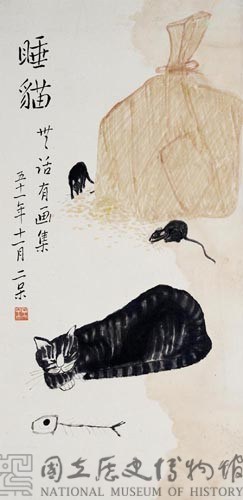 睡貓
無话有画集
五十一年十一月 二呆
國立歷史博物館
NATIONAL MUSEUM OF HISTORY